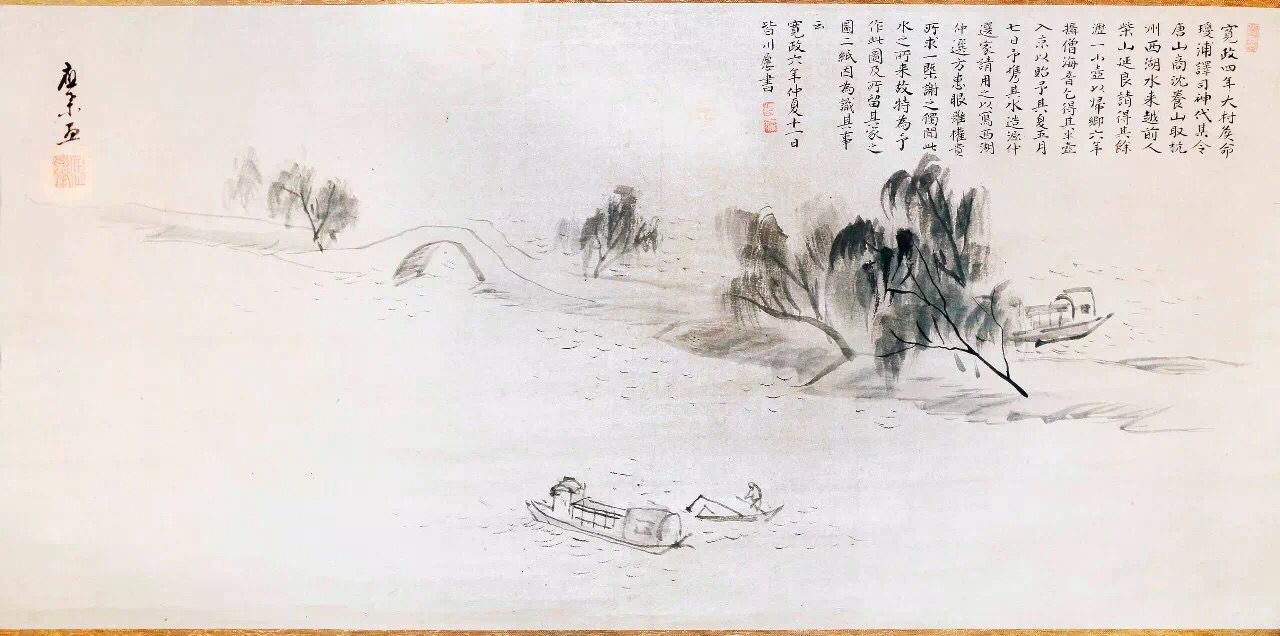 寛政四年大村矦命
瓊浦譯司神代某令
唐山商沈養山取杭
州西湖水来越前人
柴山延良請得其餘
瀝一小壺以帰郷六年
攜僧海音乞得其半壺
入京以貽予其夏五月
七日予携其水造源仲
選家請用之以写西湖
仲選方患眼離権賞
所来一槩謝之獨聞此
水之所来故特為予
作此圖及所留其家之
圖二紙因為識其事
云
寛政六年仲夏十一日
皆川愿書
應挙画